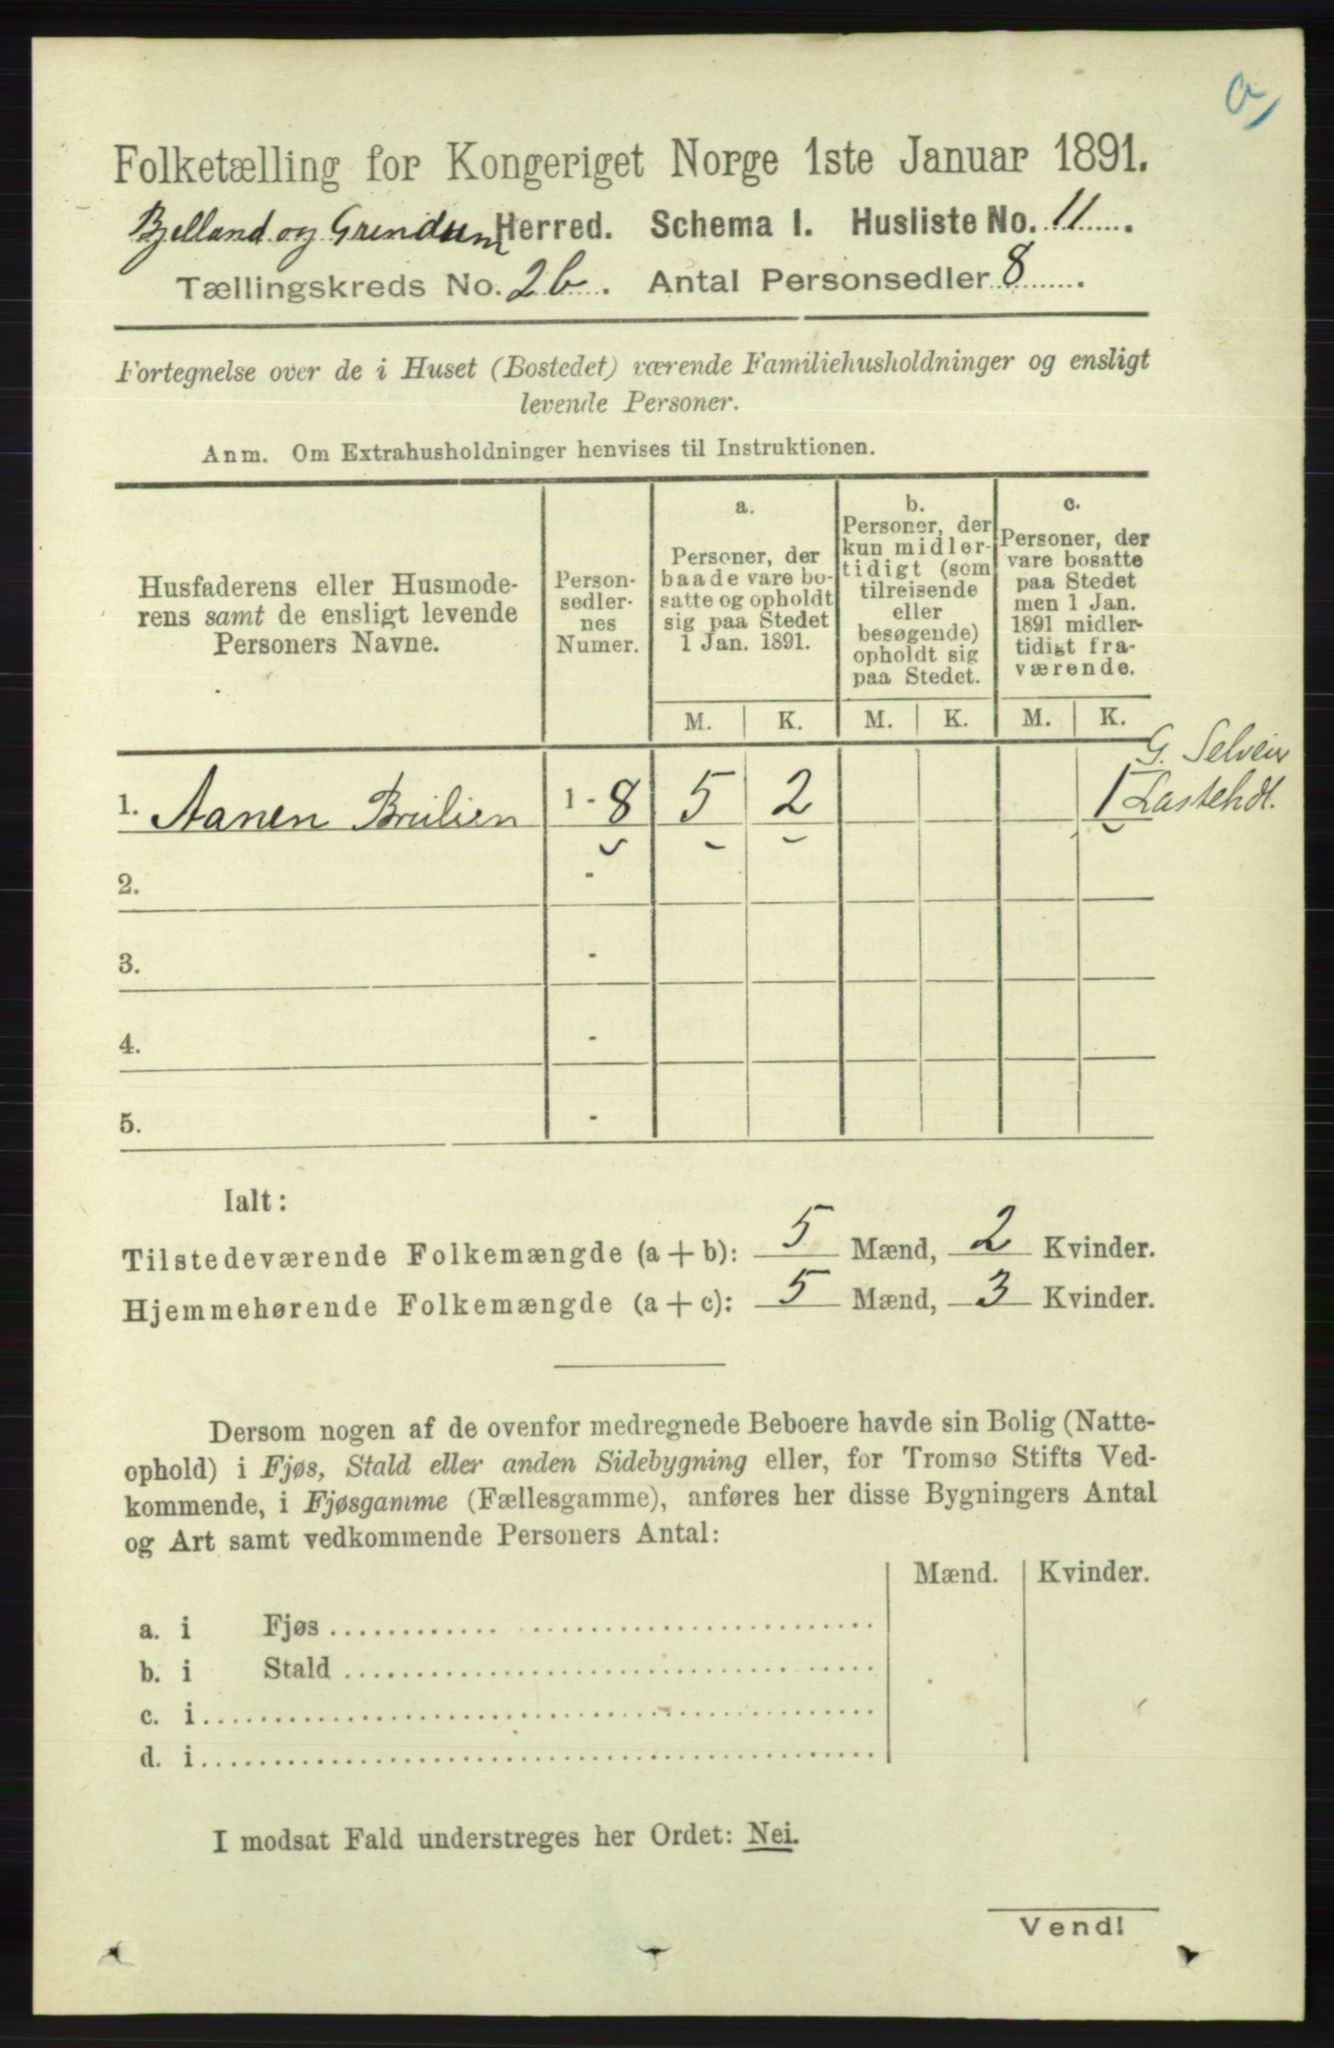 Folketælling for Kongeriget Norge 1ste Januar 1891.
Bjelland og Grendum Herred. Schema I. Husliste No. 11.
Tællingskreds No. 2b. Antal Personsedler 8.
Fortegnelse over de i Huset (Bostedet) værende Familiehusholdninger og ensligt
levende Personer.
Anm. Om Extrahusholdninger henvises til Instruktionen.
Husfaderens eller Husmode-
rens samt de ensligt levende
Personers Navne.
Person-
sedler-
nes
Numer.
a.
Personer, der
baade vare bo-
satte og opholdt
sig paa Stedet
1 Jan. 1891.
b.
Personer, der
kun midler-
tidigt (som
tilreisende
eller
besøgende)
opholdt sig
paa Stedet.
c.
Personer, der
vare bosatte
paa Stedet
men 1 Jan.
1891 midler-
tidigt fra-
værende.
M. K. M. K. M. K.
1. Aanen 1 - 8 5 2 1
G.
2. -
3. -
4. -
5. -
Ialt:
Tilstedeværende Folkemængde (a + b): 5 Mænd, 2 Kvinder.
Hjemmehørende Folkemængde (a + c): 5 Mænd, 3 Kvinder.
Dersom nogen af de ovenfor medregnede Beboere havde sin Bolig (Natte-
ophold) i Fjøs, Stald eller anden Sidebygning eller, for Tromsø Stifts Ved-
kommende, i Fjøsgamme (Fællesgamme), anføres her disse Bygningers Antal
og Art samt vedkommende Personers Antal:
Mænd. Kvinder.
a. i Fjøs
b. i Stald
c. i
d. i
I modsat Fald understreges her Ordet: Nei.
Vend!